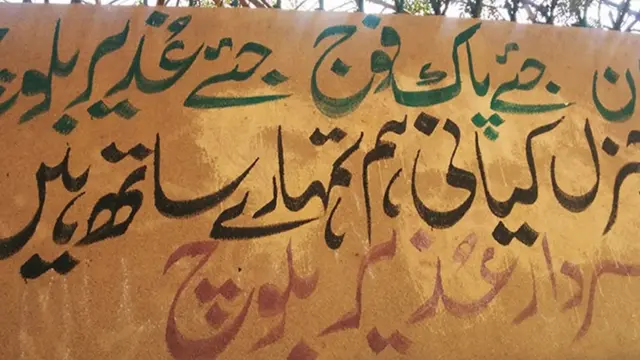 جئے پاک فوج جئے عُذیر بلوچ
کیانی ہم تمہارے ساتھ ہیں
سردار عُذیر بلوچ